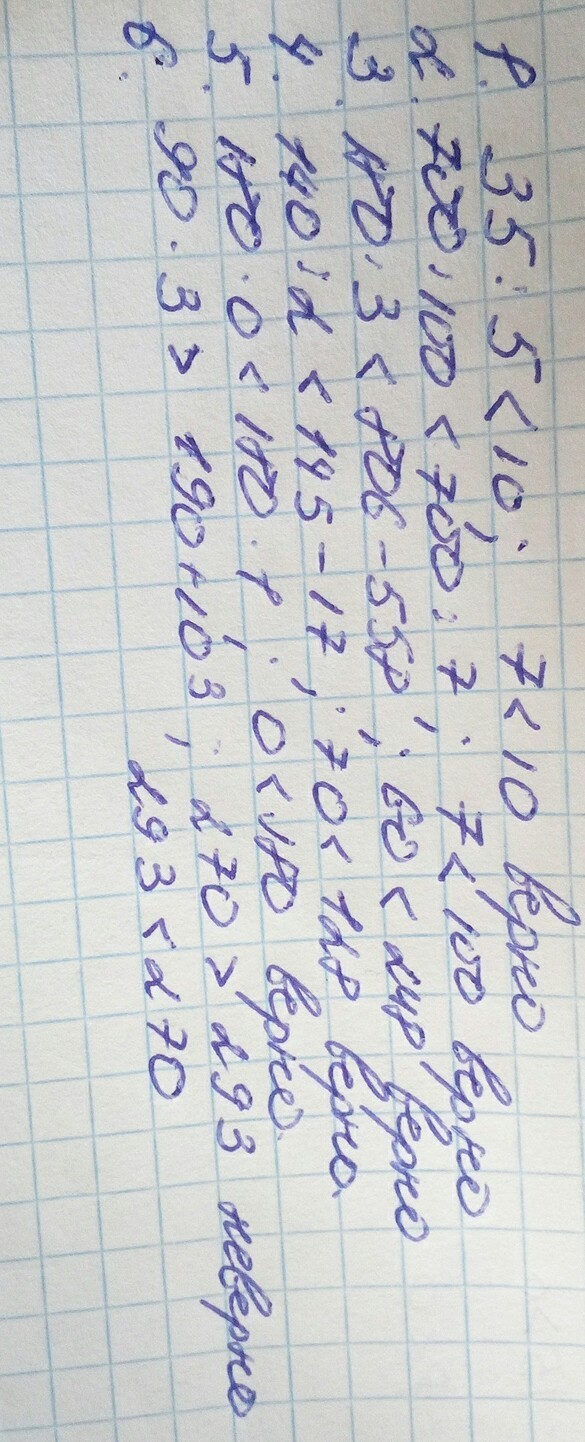 1. 35 : 5 < 10 ; 7 < 10 верно
2. 700 : 100 < 700 : 7 ; 7 < 100 верно
3. 180 : 3 < 806 - 558 ; 60 < 248 верно
4. 140 : 2 < 145 - 17 ; 70 < 128 верно.
5. 180 · 0 < 180 · 1 ; 0 < 180 верно.
6. 90 · 3 > 190 + 103 ; 270 > 293 неверно
293 < 270